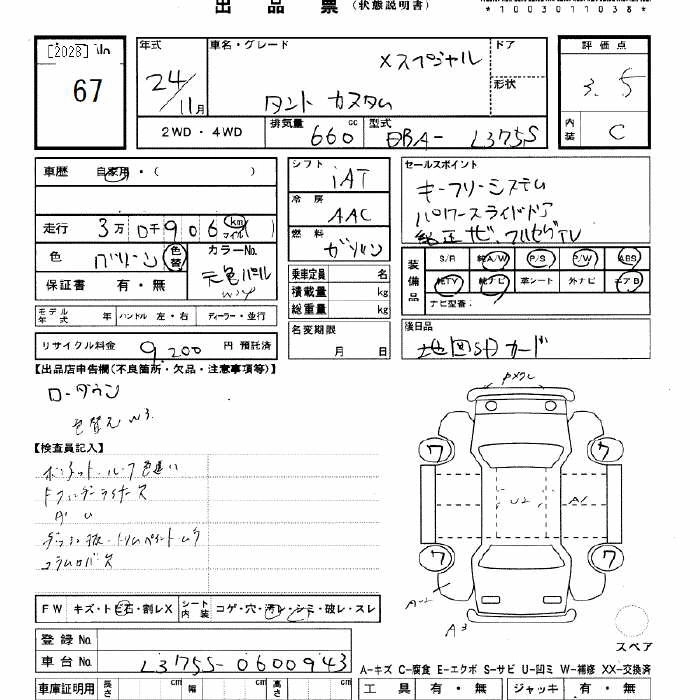 出品票(状態説明書)
*1003011038*
[2028] No
67
年式 24/11月
車名・グレード
Xスペシャル
タント カスタム
ドア
形状
評価点
3.5
内装 C
2WD・4WD
排気量 660 cc
型式 DBA- L375S
車歴 自家用・( )
走行 3万 0千 9 0 6 km マイル ( )
色 グリーン 色替
カラーNo. 元色パール W24
保証書 有・無
シフト iAT
冷房 AAC
燃料 ガソリン
乗車定員 名
積載量 kg
総重量 kg
セールスポイント
キーフリーシステム
パワースライドドア
純正ナビ、フルセグTV
装備品
S/R 純A/W P/S P/W ABS
純TV 純ナビ 革シート 外ナビ エアB
ナビ型番:
モデル年式 年 ハンドル 左・右 ディーラー・並行
リサイクル料金 9,200 円 預託済
名変期限
月 日
後日品
地図SDカード
【出品店申告欄(不良箇所・欠品・注意事項等)】
ローダウン
色替え W3
【検査員記入】
ボンネット・ルーフ色違い
FW キズ・トビ石・割レX シート内装 コゲ・穴・汚レ・シミ・破レ・スレ
登録No.
車台No. L375S-0600943
車庫証明用 長さ cm 幅 cm 高さ cm
ワ
ワ
U2
A1
ワ
ワ
A-2
A3
スペア
A-キズ C-腐食 E-エクボ S-サビ U-凹ミ W-補修 XX-交換済
工具 有・無 ジャッキ 有・無